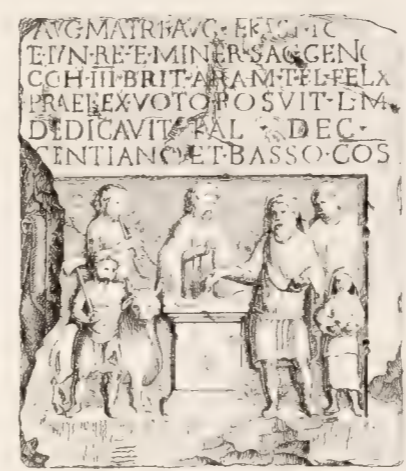 AVG·MATRI·AVG·
ET·IVN·RE·E·MINER·SAC·GENC
CCH·III·BRIT·ARAM·T·FL·FELX
PRAEF·EX·VOTO·POSVIT·L·M
DEDICAVIT· KAL · DEC·
GENTIANO·ET·BASSO·COS